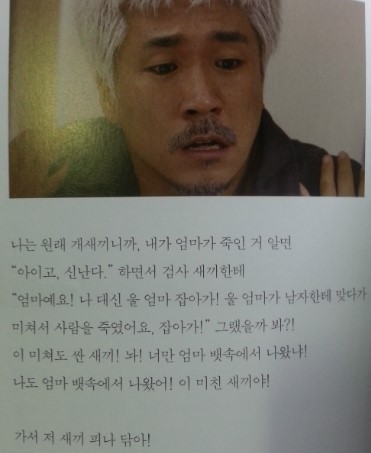 나는 원래 개새끼니까, 내가 엄마가 죽인 거 알면
“아이고, 신난다.” 하면서 검사 새끼한테
“엄마예요! 나 대신 울 엄마 잡아가! 울 엄마가 남자한테 맞다가
미쳐서 사람을 죽였어요, 잡아가!” 그랬을까 봐?!
이 미쳐도 싼 새끼! 놔! 너만 엄마 뱃속에서 나왔냐!
나도 엄마 뱃속에서 나왔어! 이 미친 새끼야!
가서 저 새끼 피나 닦아!